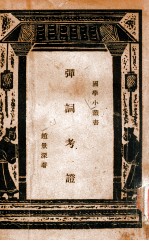 國學小叢書
彈詞考證
趙景深著